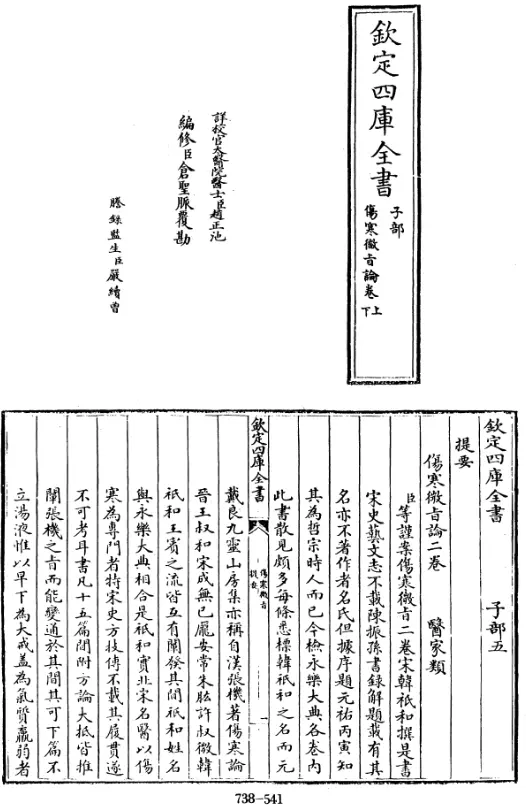 欽定四庫全書
子部
傷寒微旨論卷上下
詳校官太醫院醫士臣趙正池
編修臣倉聖脈覆勘
謄錄監生臣嚴續曾
欽定四庫全書
子部五
提要
傷寒微旨論二卷
醫家類
臣等謹案傷寒微旨二卷宋韓祗和撰是書
宋史藝文志不載陳振孫書録解題載有其
名亦不著作者名氏但據序題元祐丙寅知
其為哲宗時人而已今檢永樂大典各卷内
此書散見頗多每條悉標韓祗和之名而元
欽定四庫全書
傷寒微旨
提要
一
戴良九靈山房集亦稱自漢張機著傷寒論
晉王叔和宋成無已龐安常朱肱許叔微韓
祗和王賓之流皆互有闡發其間祗和姓名
與永樂大典相合是祗和實北宋名醫以傷
寒為專門者特宋史方技傳不載其履貫遂
不可考耳書凡十五篇間附方論大抵皆推
闡張機之旨而能變通於其間其可下篇不
立湯液惟以早下為大戒蓋為氣質羸弱者
738-541